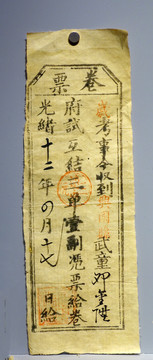 卷票
考事今收到
武童邓
府試互結三單壹副憑票給卷
光緒十二年四月十七日給